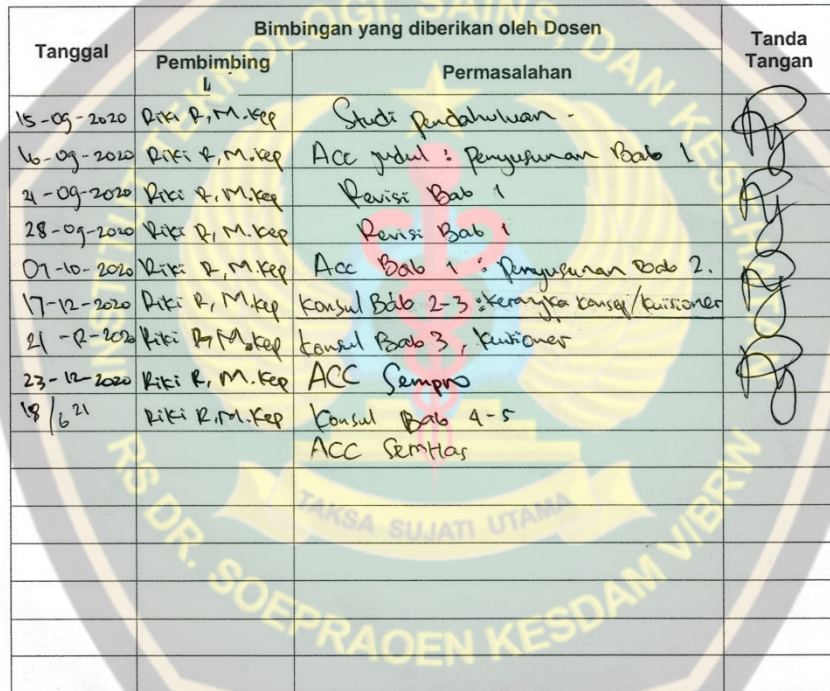 Tanggal
Bimbingan yang diberikan oleh Dosen
Tanda Tangan
Pembimbing
Permasalahan
15-09-2020 Riki R, M.Kep Studi pendahuluan.
16-09-2020 Riki R, M.Kep Acc judul : Penyusunan Bab 1
21-09-2020 Riki R, M.Kep Revisi Bab 1
28-09-2020 Riki R, M.Kep Revisi Bab 1
07-10-2020 Riki R, M.Kep Acc Bab 1 : Penyusunan Bab 2.
17-12-2020 Riki R, M.Kep Konsul Bab 2-3 : Kerangka konsep/kuisioner
21-12-2020 Riki R, M.Kep Konsul Bab 3, kuisioner
23-12-2020 Riki R, M.Kep ACC Sempro
18/6 21 Riki R, M.Kep Konsul Bab 4-5
ACC SemHas
INSTITUT TEKNOLOGI, SAINS, DAN KESEHATAN
RS DR. SOEPRAOEN KESDAM V/BRW
TAKSA SUJATI UTAMA